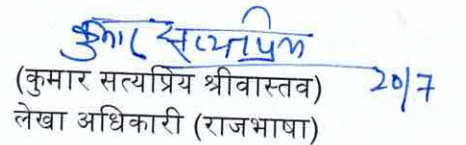 कुमार सत्यप्रिय
(कुमार सत्यप्रिय श्रीवास्तव) 20/7
लेखा अधिकारी (राजभाषा)